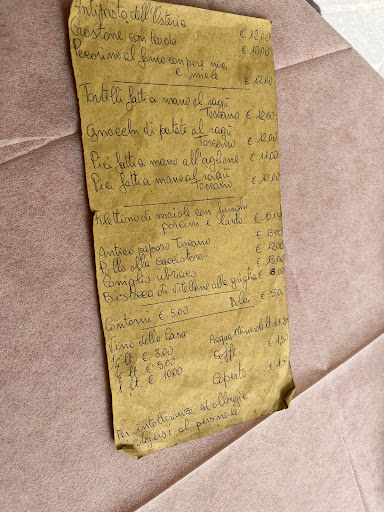 Antipasto dell'Osteria € 12,00
Crostone con lardo € 10,00
Pecorino al forno con pere noci
e miele € 12,00
Tortelli fatti a mano al ragù
Toscano € 12,00
Gnocchi di patate al ragù
Toscano € 12,00
Pici fatti a mano all'aglione € 11,00
Pici fatti a mano al ragù
Toscano € 12,00
Filettino di maiale con funghi
porcini e lardo € 15,00
Antico peposo Toscano € 13,00
Pollo alla cacciatora € 12,00
Coniglio ubriaco € 13,00
Bistecca di Vitellone alla griglia € 18,00
Contorni € 5,00 Dolci € 5,00
Vino della Casa
1/4 lt € 3,00
1/2 lt € 5,00
1 lt € 10,00
Acqua Minerale lt
Caffè € 1,50
Coperto € 1,50
Per intolleranze ed allergie
al personale